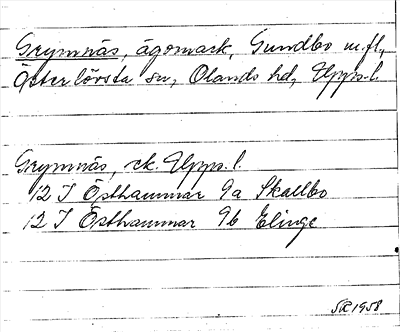 Grymnäs, ägomark, Gundbo m.fl,
Österlövsta sn, Olands hd, Upps.l.
Grymnäs, ek. Upps.l.
12 I Östhammar 9a Skallbo
12 I Östhammar 9b Elinge
SR 1958